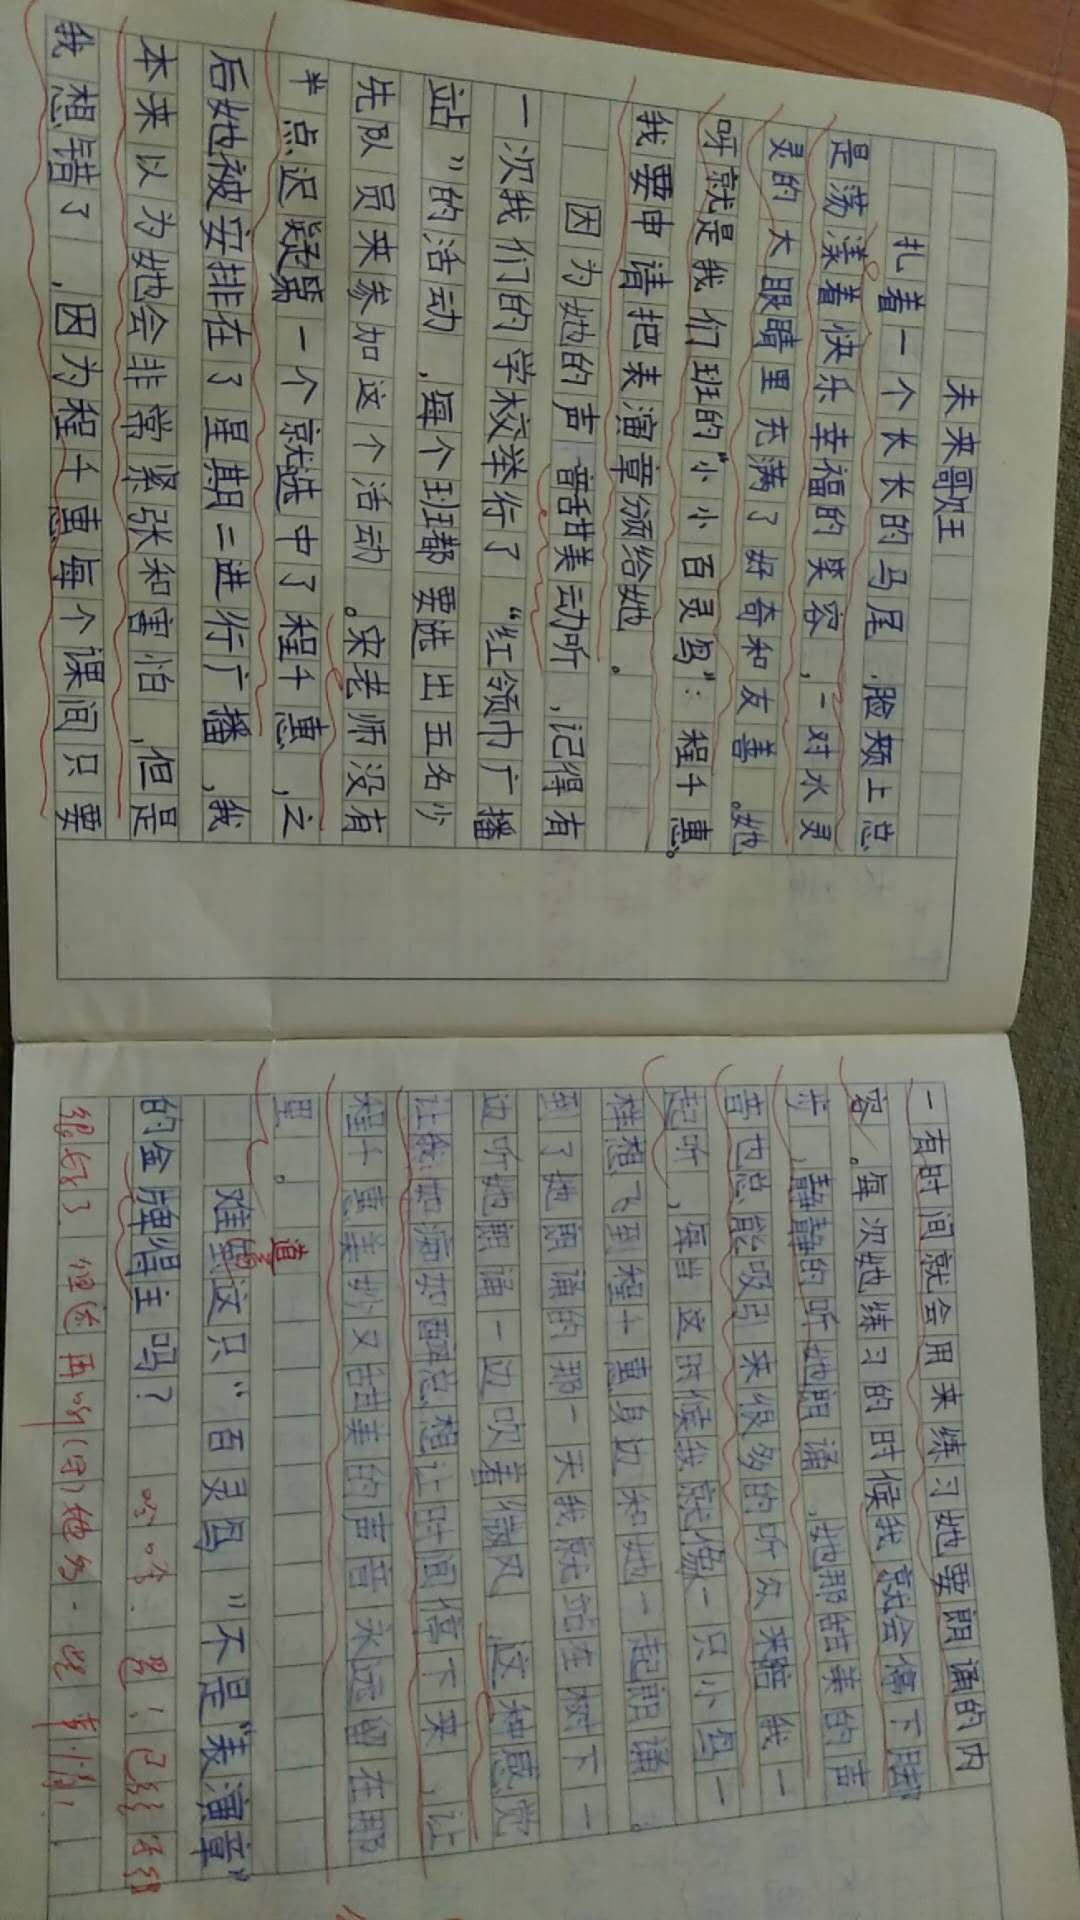 未来歌王
扎着一个长长的马尾.脸颊上总
是荡漾着快乐幸福的笑容，一对水灵
灵的大眼睛里充满了好奇和友善。她
呀就是我们班的“小小百灵鸟”：程千惠。
我要申请把表演章颁给她。
因为她的声音甜美动听，记得有
一次我们的学校举行了“红领巾广播
站”的活动，每个班都要选出五名少
先队员来参加这个活动。宋老师没有
半点迟疑第一个就选中了程千惠，之
后她被安排在了星期二进行广播，我
本来以为她会非常紧张和害怕，但是
我想错了，因为程千惠每个课间只要
一有时间就会用来练习她要朗诵的内
容。每次她练习的时候我就会停下脚
步，静静的听她朗诵，她那甜美的声
音也总能吸引来很多的听众来陪我一
起听，每当这时候我就像一只小鸟一
样想飞到程千惠身边和她一起朗诵。
到了她朗诵的那一天我就站在树下一
边听她朗诵一边吹着微风，这种感觉
让我如痴如醉总想让时间停下来，让
程千惠美妙又甜美的声音永远留在那
里。
道
难到这只“百灵鸟”不是“表演章”
的金牌得主吗？
哈哈，是！已经
很好了
但还再
她多一些事情！